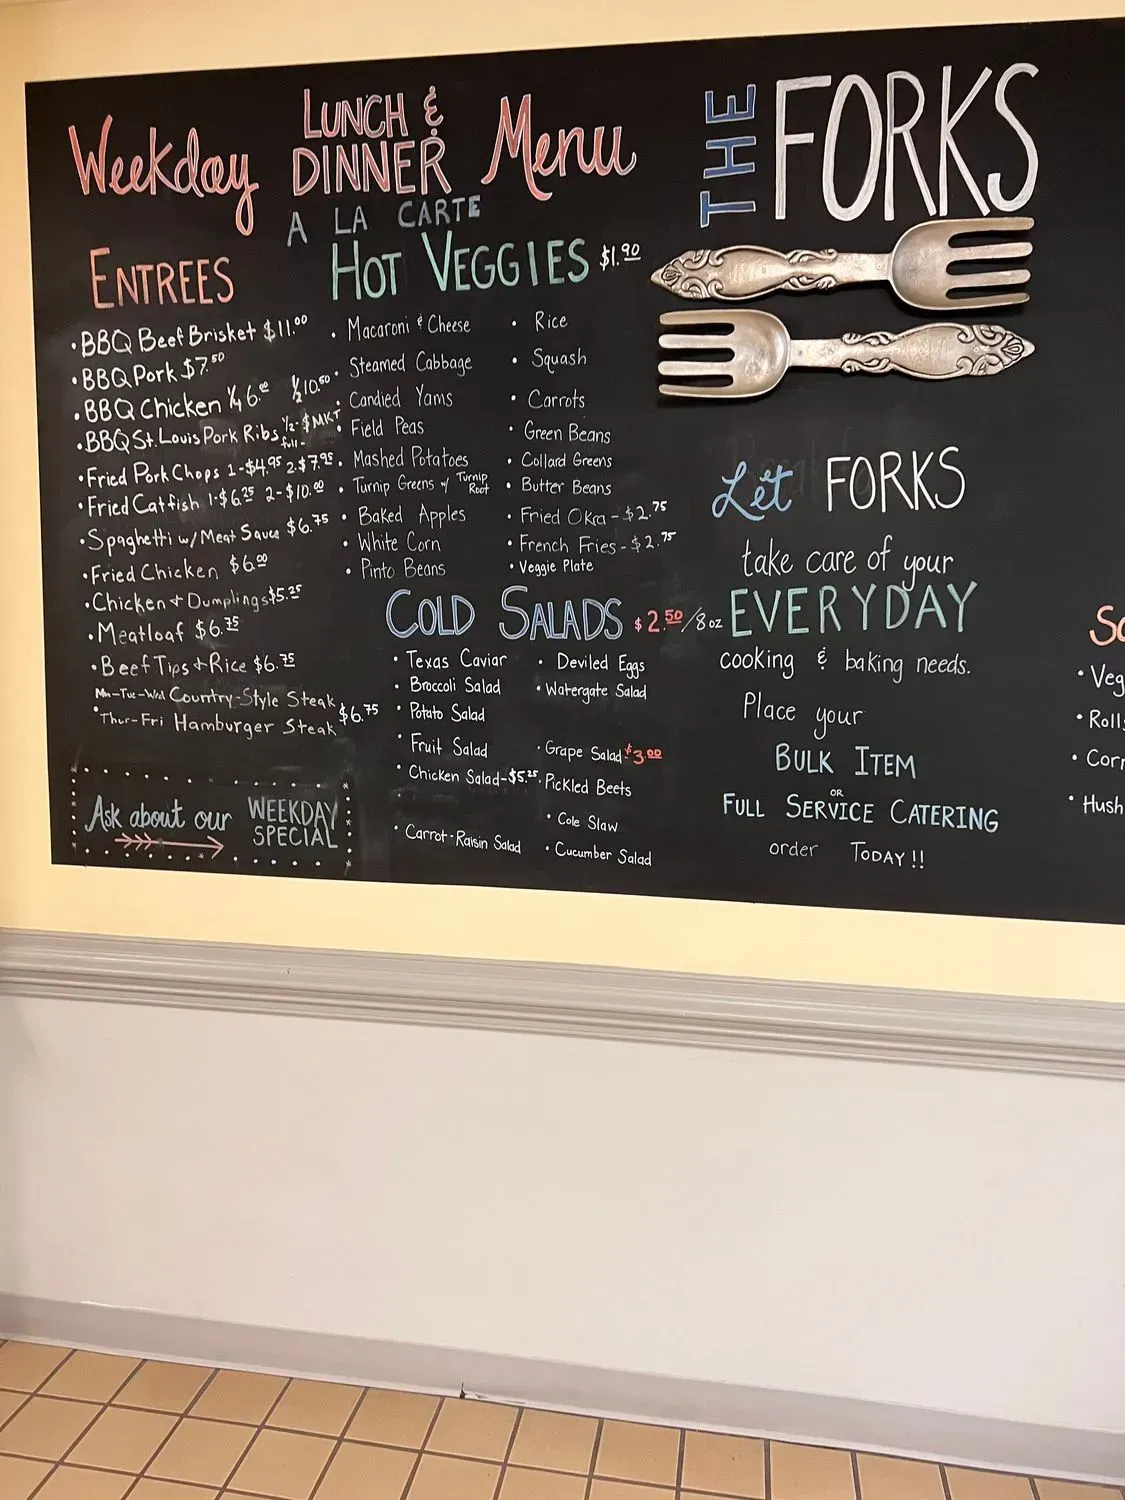 Weekday LUNCH & DINNER Menu
A LA CARTE
ENTREES
• BBQ Beef Brisket $11.00
• BBQ Pork $7.50
• BBQ Chicken 1/4 6.00 1/2 10.50
• BBQ St. Louis Pork Ribs 1/2-$MKT
full-
• Fried Pork Chops 1-$4.95 2-$7.95
• Fried Catfish 1-$6.25 2-$10.00
• Spaghetti w/ Meat Sauce $6.75
• Fried Chicken $6.00
• Chicken + Dumplings $5.25
• Meatloaf $6.75
• Beef Tips + Rice $6.75
Mon-Tue-Wed Country-Style Steak
• Thur-Fri Hamburger Steak $6.75
Ask about our WEEKDAY SPECIAL
HOT VEGGIES $1.90
• Macaroni & Cheese
• Steamed Cabbage
• Candied Yams
• Field Peas
• Mashed Potatoes
• Turnip Greens w/ Turnip Root
• Baked Apples
• White Corn
• Pinto Beans
• Rice
• Squash
• Carrots
• Green Beans
• Collard Greens
• Butter Beans
• Fried Okra - $2.75
• French Fries - $2.75
• Veggie Plate
COLD SALADS $2.50/8oz
• Texas Caviar
• Broccoli Salad
• Potato Salad
• Fruit Salad
• Chicken Salad - $5.25
• Carrot-Raisin Salad
• Deviled Eggs
• Watergate Salad
• Grape Salad - $3.00
• Pickled Beets
• Cole Slaw
• Cucumber Salad
THE FORKS
Let FORKS
take care of your
EVERYDAY
cooking & baking needs.
Place your
BULK ITEM
OR
FULL SERVICE CATERING
order TODAY!!
• Veg
• Roll
• Hush